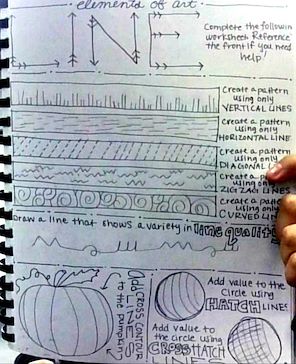 elements of art
LINE
Complete the followin
worksheet. Reference
the front if you need
help!
Create a pattern
using only
VERTICAL LINES
Create a pattern
using only
HORIZONTAL LINE
Create a pattern
using only
DIAGONAL
Create a
using only
ZIGZAG LINES
Create a patt
using only
CURVED LIN
Draw a line that shows a variety in line quality
Add CROSS CONTOUR
LINES
to the pumpkin
Add value to the
circle using
HATCH LINES
Add value to
the circle using
CROSSHATCH
LINE